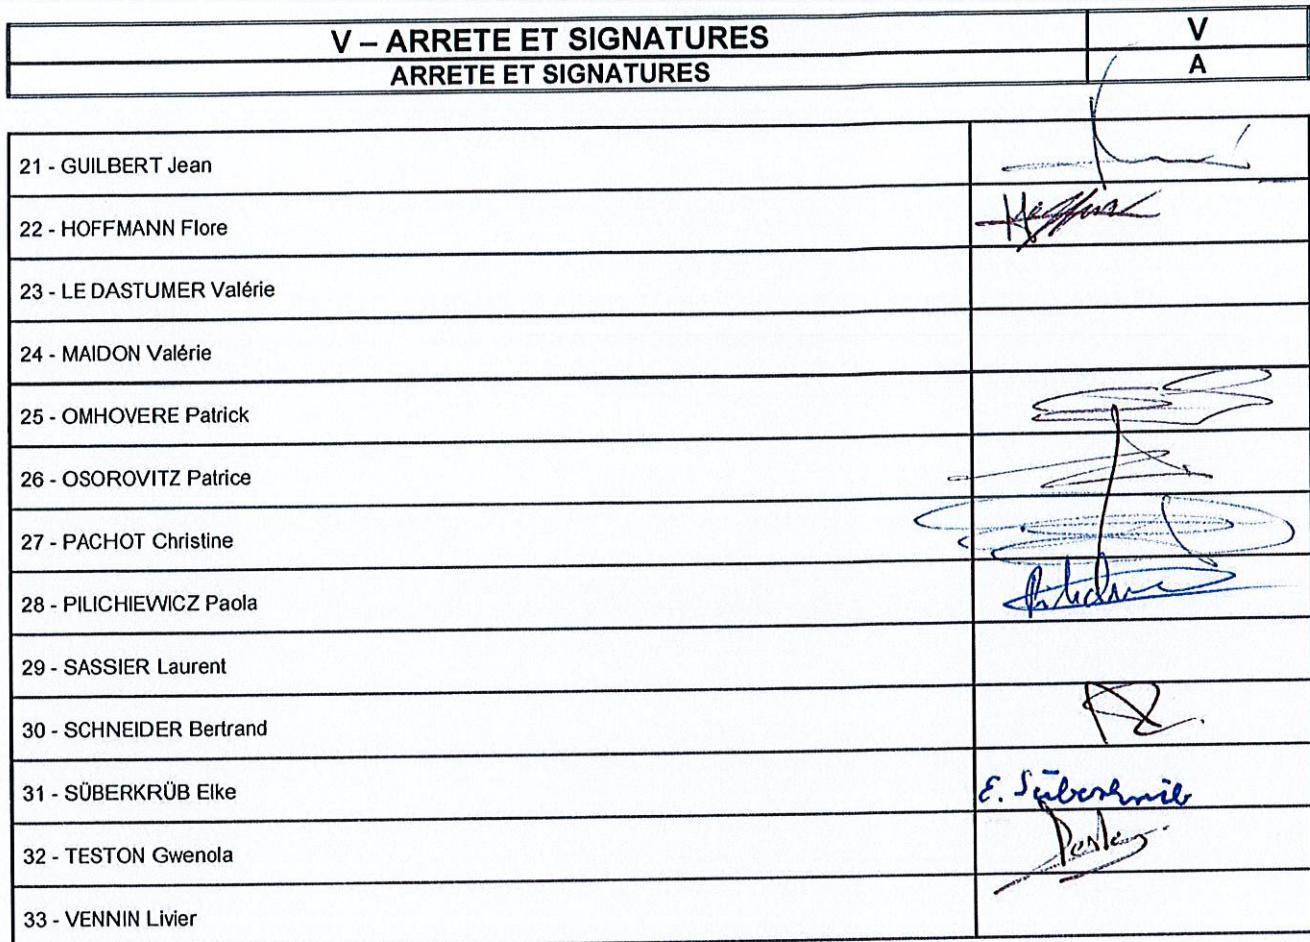 V – ARRETE ET SIGNATURES
V
ARRETE ET SIGNATURES
A
21 - GUILBERT Jean
22 - HOFFMANN Flore
23 - LE DASTUMER Valérie
24 - MAIDON Valérie
25 - OMHOVERE Patrick
26 - OSOROVITZ Patrice
27 - PACHOT Christine
28 - PILICHIEWICZ Paola
29 - SASSIER Laurent
30 - SCHNEIDER Bertrand
31 - SÜBERKRÜB Elke
E. Süberkrüb
32 - TESTON Gwenola
33 - VENNIN Livier